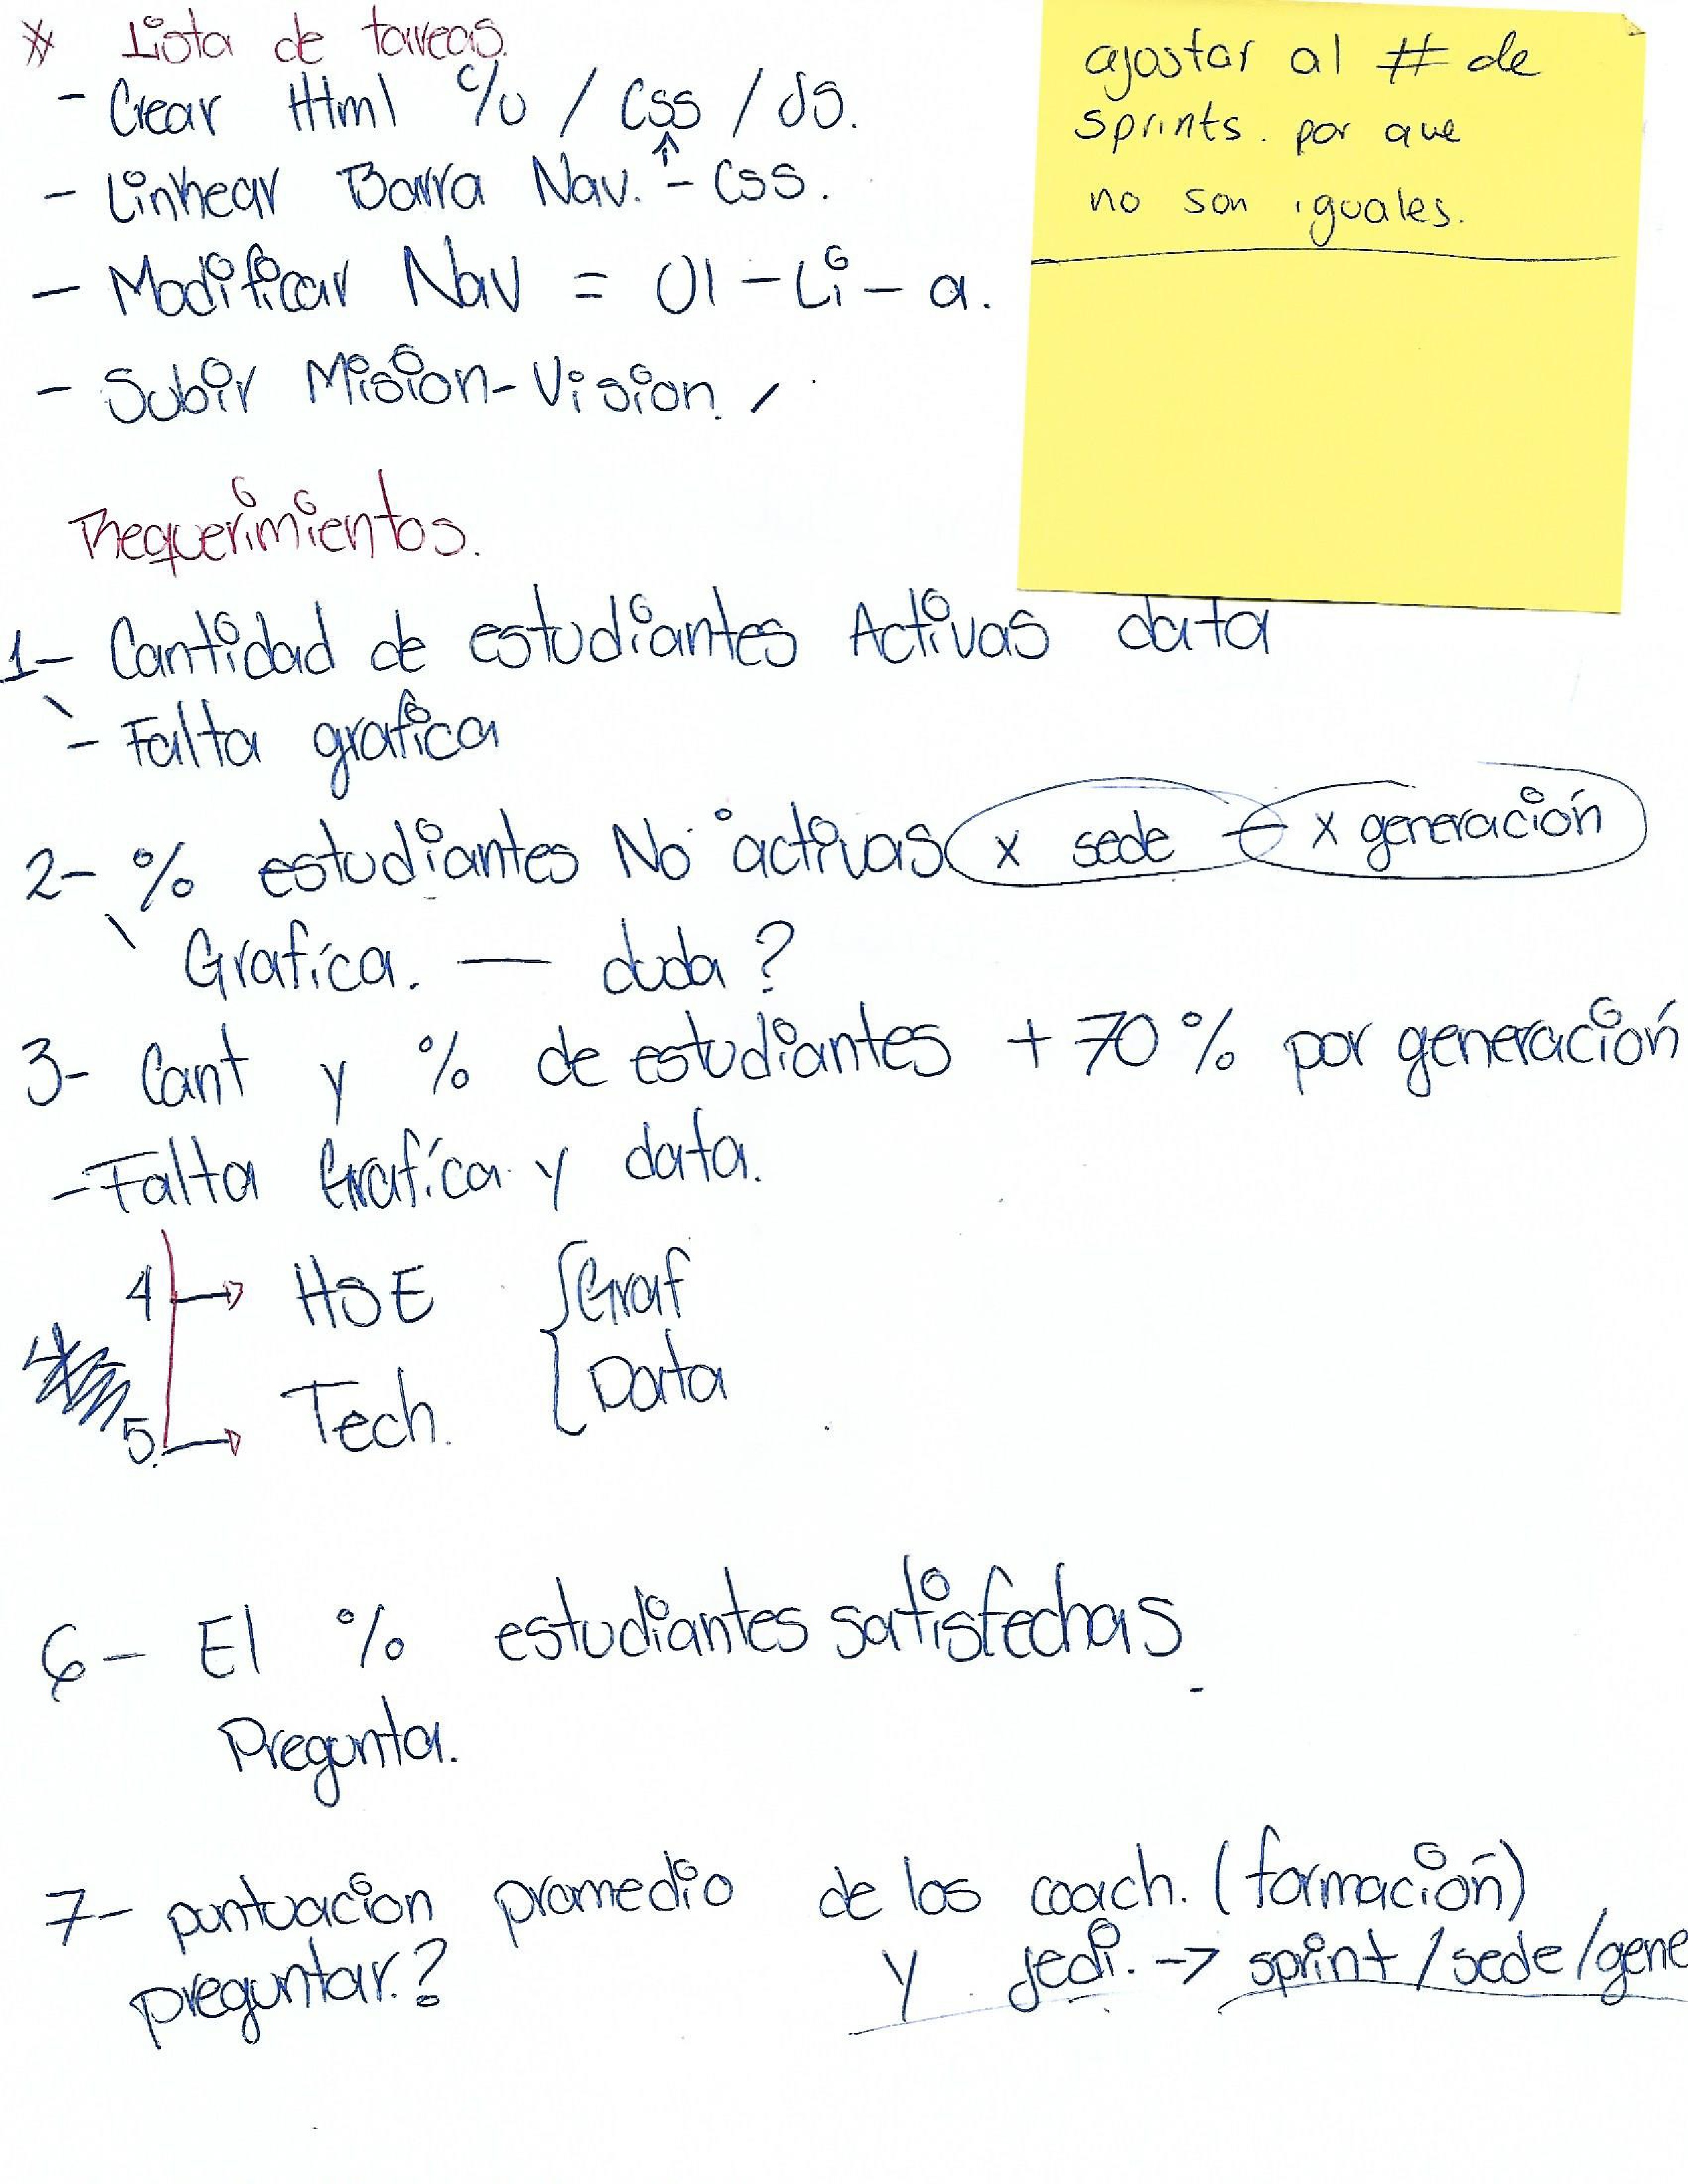 * Lista de tareas.
- Crear Html c/u / Css / JS.
- Linkear Barra Nav. - Css.
- Modificar Nav = Ul - Li - a.
- Subir Mision-Vision.
ajostar al # de
sprints. por que
no son iguales.
Requerimientos.
1- Cantidad de estudiantes Activas data
- Falta grafica
2- % estudiantes No activas x sede - x generación
Grafica. — duda?
3- Cant y % de estudiantes + 70% por generación
- Falta Grafica y data.
4 → HSE { Graf
5. → Tech. Data
6- El % estudiantes satisfechas
Pregunta.
7- puntuacion promedio de los coach. (formación)
preguntar.? y jedi. → sprint / sede / gene